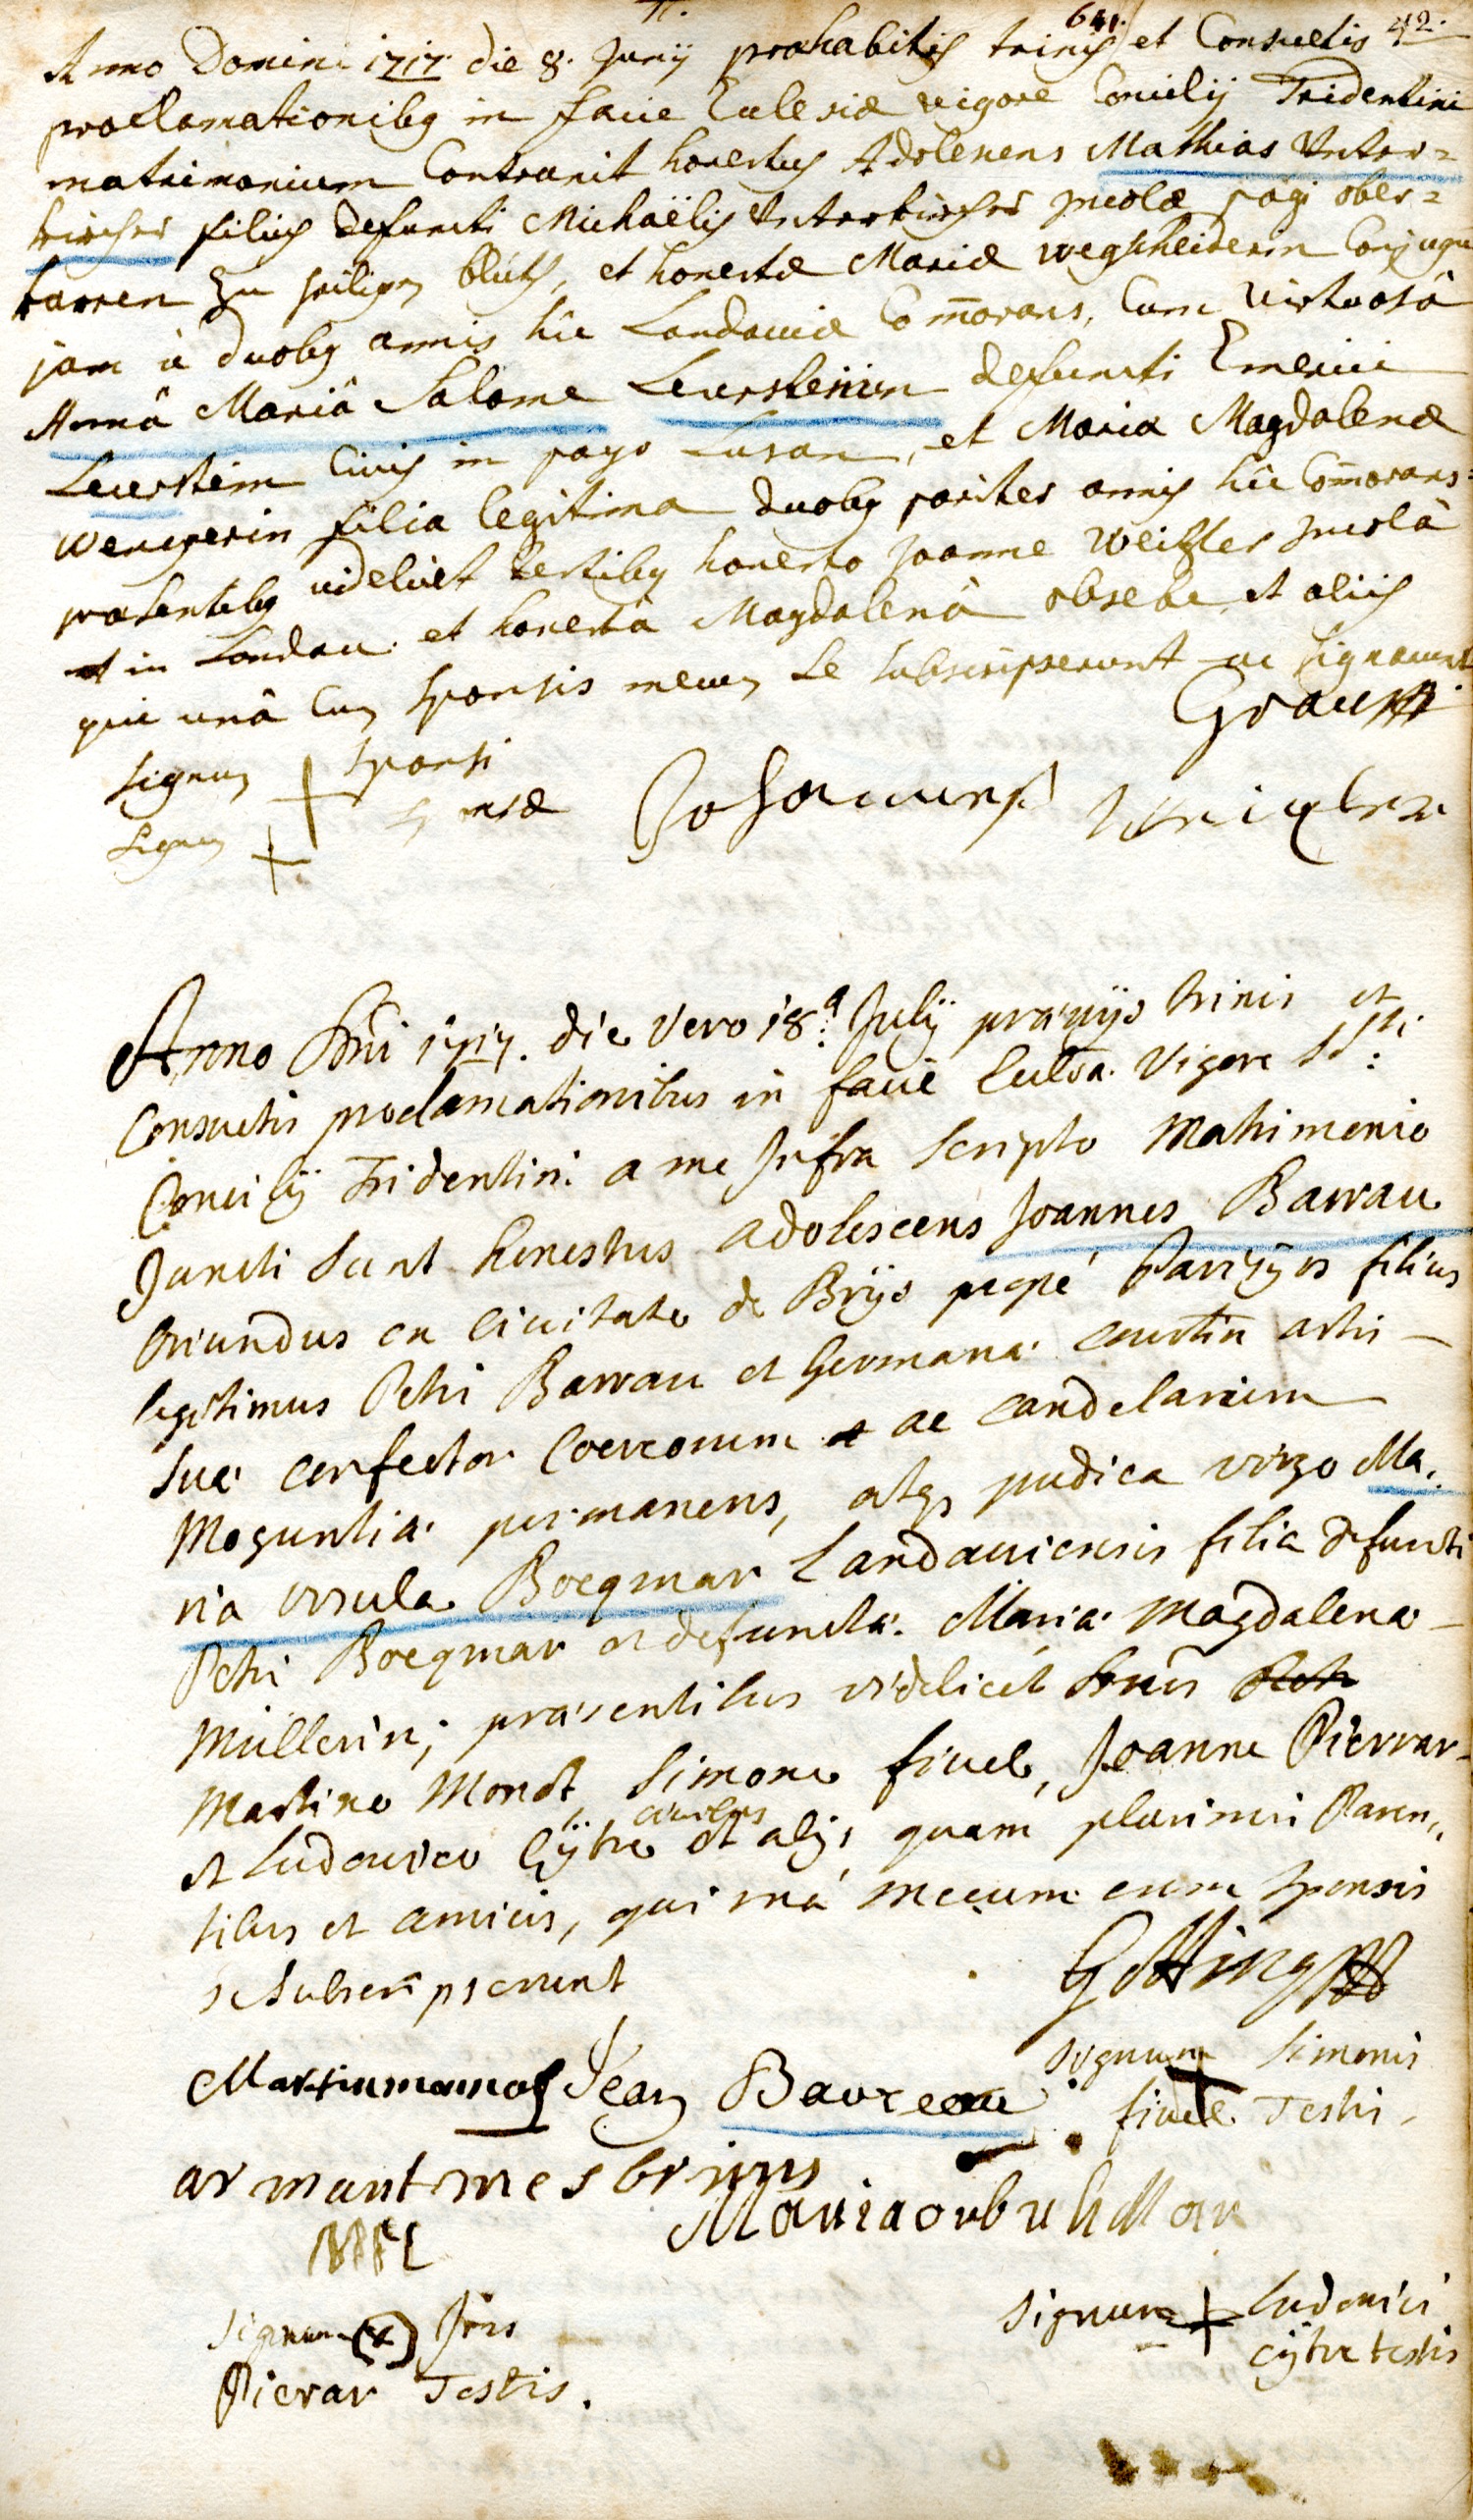 641. 42.
Anno Domini 1717. die 8. Junÿ præhabitis trinis et Consuetis
proclamationibg in facie Ecclesiæ vigore Concilÿ Tridentini
matrimonium Contraxit honestus Adolescens Mathias Unter=
kircher filius defuncti Michaëlis Unterkircher incolæ pagi ober=
tauren zu heiligen bluth, et honestæ Mariæ wegscheiderin Conjugū
jam à duobg annis hic Landaviæ Com̄orans, Cum Virtuosâ
Annâ Mariâ Salome Leursteinin defuncti Emerici
Leuerstein Civis in pago Lusan, et Maria Magdalenæ
wengerin filia legitima duobg pariter annis hic Com̄orans=
præsentibg videlicet testibg honesto Joanne Weitzler incolâ
in Landau. et honestâ Magdalenâ et aliis
qui unâ Cum sponsis mecum se subscripserunt ac signarunt
Grau
signum + sponsi
signum + sponsæ
Johannes
Anno Dñi 1717. die vero 18a. Julÿ prævÿs trinis et
Consuetis proclamationibus in facie Eccle͞a. vigore SSti:
Concilÿ Tridentini a me Infra scripto Matrimonio
Juncti sunt honestus adolescens Joannes Barrau
Oriundus ex Civitate de Brÿs propè Parisÿos filius
legitimus Petri Barrau et Germana courtin artis
suæ confector Coereorum ac candelarum
Moguntiæ permanens, atq, pudica virgo Ma.
ria Ursula Bocqmar Landaviensis filia defuncti
Petri Bocqmar et defunctæ Mariæ Magdalena
Müllerin; præsentibus videlicet
Martino Monot Simone fivel, Joanne Pierrar
et Ludovico Cÿtre civibus et alÿs quam plurimis Paren„
tibus et amicis, qui unà mecum cum sponsis
se subscripserunt
Gotting
Jean Baureau
signum + Simonis
fivel Testis
armant mesbrinns
Signum (x) Jōis
Pierar Testis.
Signum + Ludovici
cÿtre testis